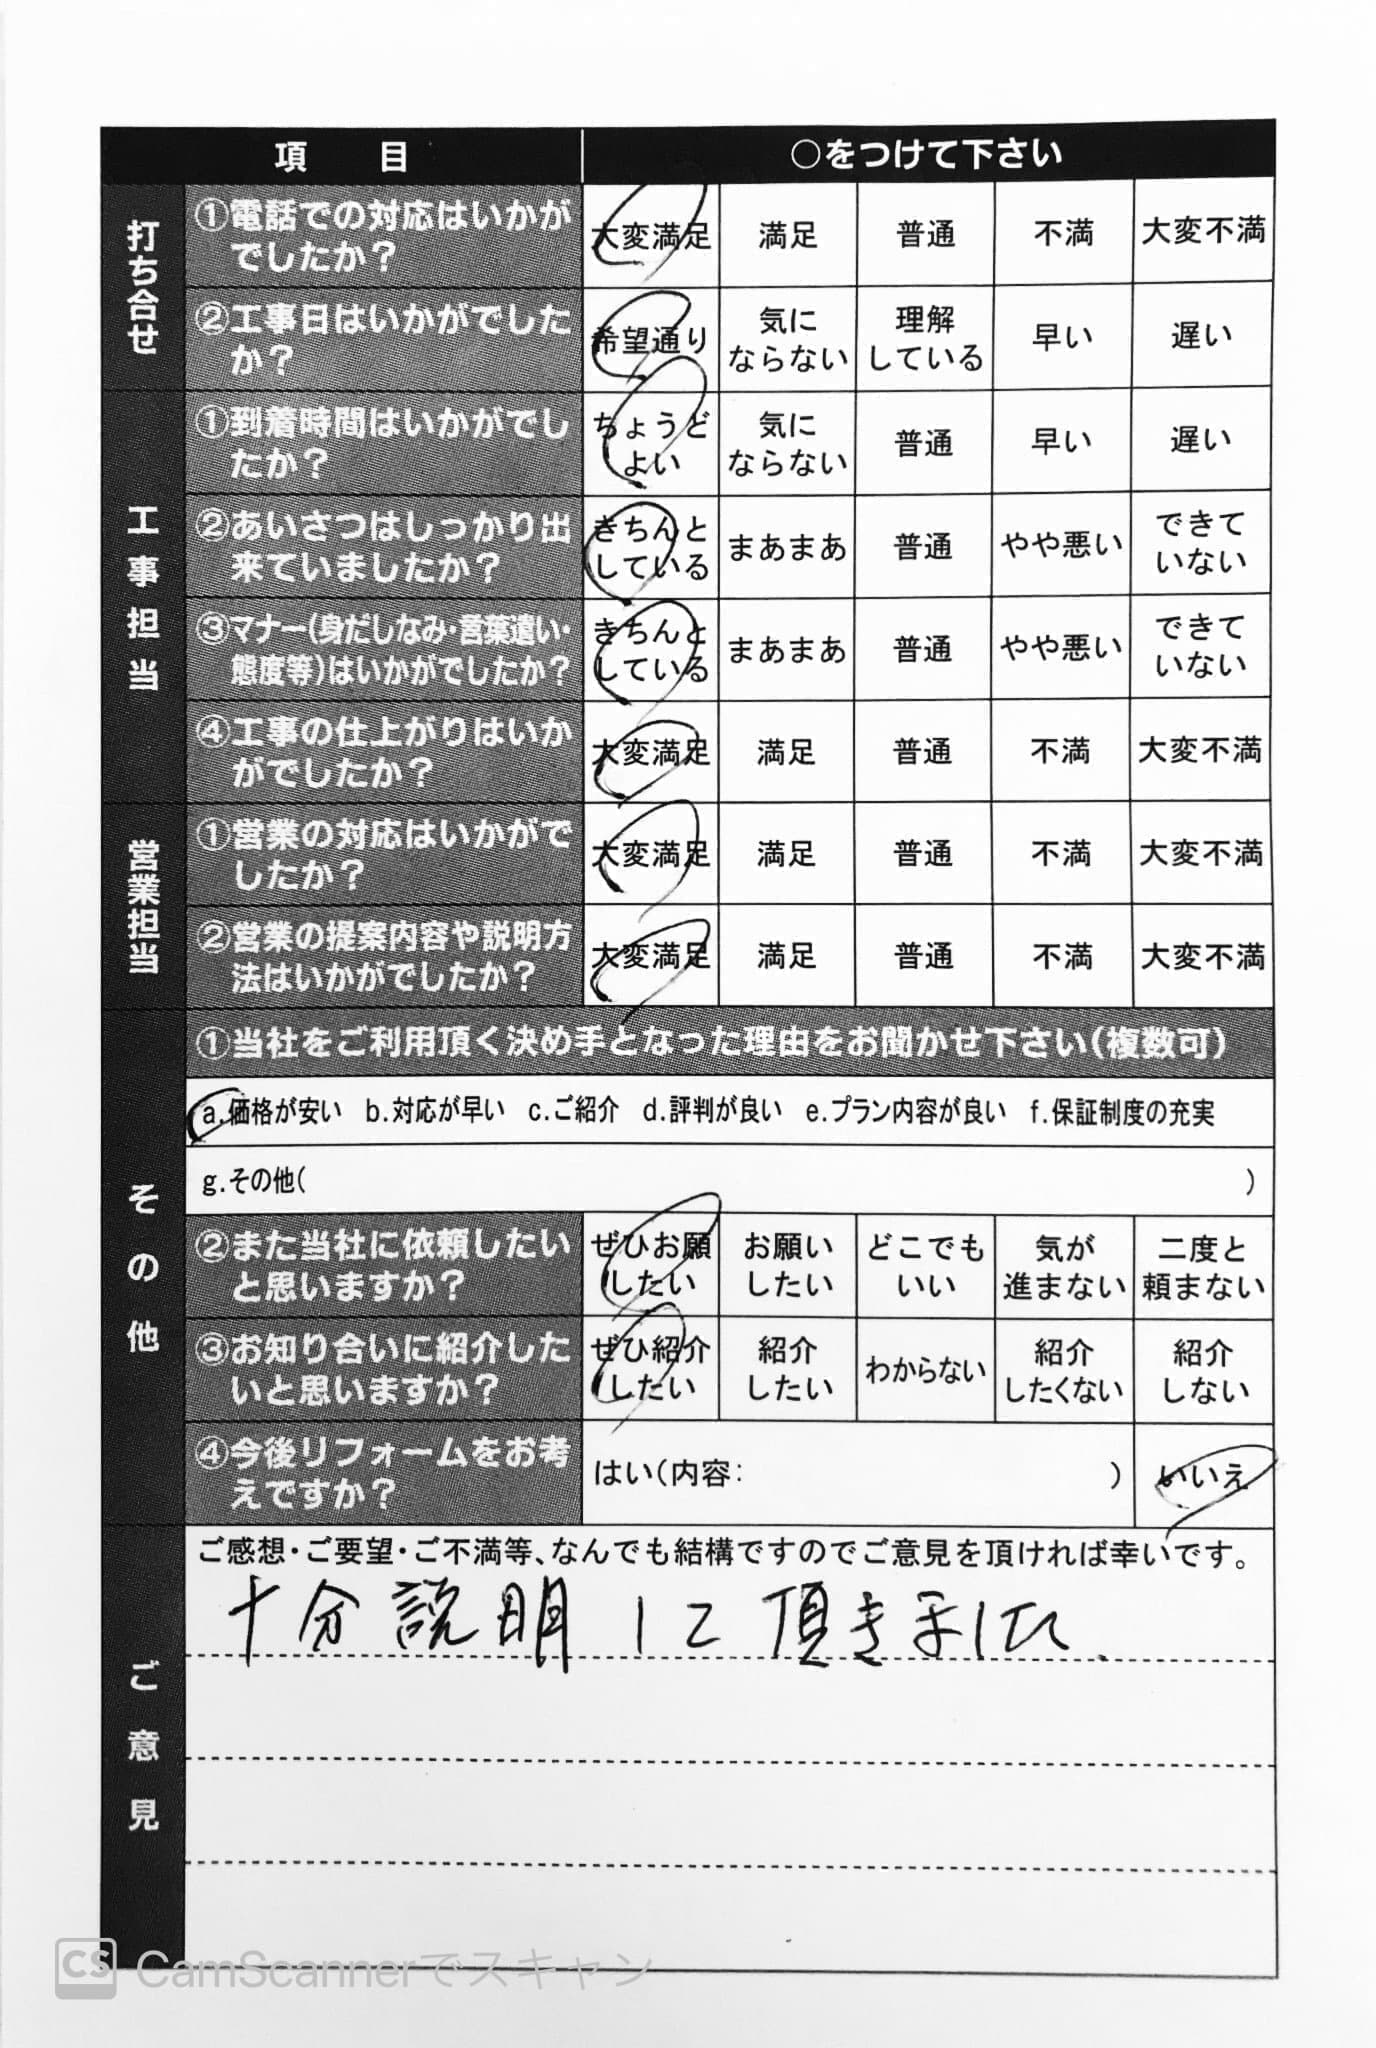 項目 ○をつけて下さい
打ち合せ
①電話での対応はいかが
でしたか？
大変満足 満足 普通 不満 大変不満
②工事日はいかがでした
か？
希望通り 気に
ならない 理解
している 早い 遅い
工事担当
①到着時間はいかがでし
たか？
ちょうど
よい 気に
ならない 普通 早い 遅い
②あいさつはしっかり出
来ていましたか？
きちんと
している まあまあ 普通 やや悪い できて
いない
③マナー(身だしなみ・言葉遣い・
態度等)はいかがでしたか？
きちんと
している まあまあ 普通 やや悪い できて
いない
④工事の仕上がりはいか
がでしたか？
大変満足 満足 普通 不満 大変不満
営業担当
①営業の対応はいかがで
したか？
大変満足 満足 普通 不満 大変不満
②営業の提案内容や説明方
法はいかがでしたか？
大変満足 満足 普通 不満 大変不満
その他
①当社をご利用頂く決め手となった理由をお聞かせ下さい(複数可)
a.価格が安い b.対応が早い c.ご紹介 d.評判が良い e.プラン内容が良い f.保証制度の充実
g.その他( )
②また当社に依頼したい
と思いますか？
ぜひお願
したい お願い
したい どこでも
いい 気が
進まない 二度と
頼まない
③お知り合いに紹介した
いと思いますか？
ぜひ紹介
したい 紹介
したい わからない 紹介
したくない 紹介
しない
④今後リフォームをお考
えですか？
はい(内容: ) いいえ
ご意見
ご感想・ご要望・ご不満等、なんでも結構ですのでご意見を頂ければ幸いです。
十分説明して頂きました.
CS CamScannerでスキャン